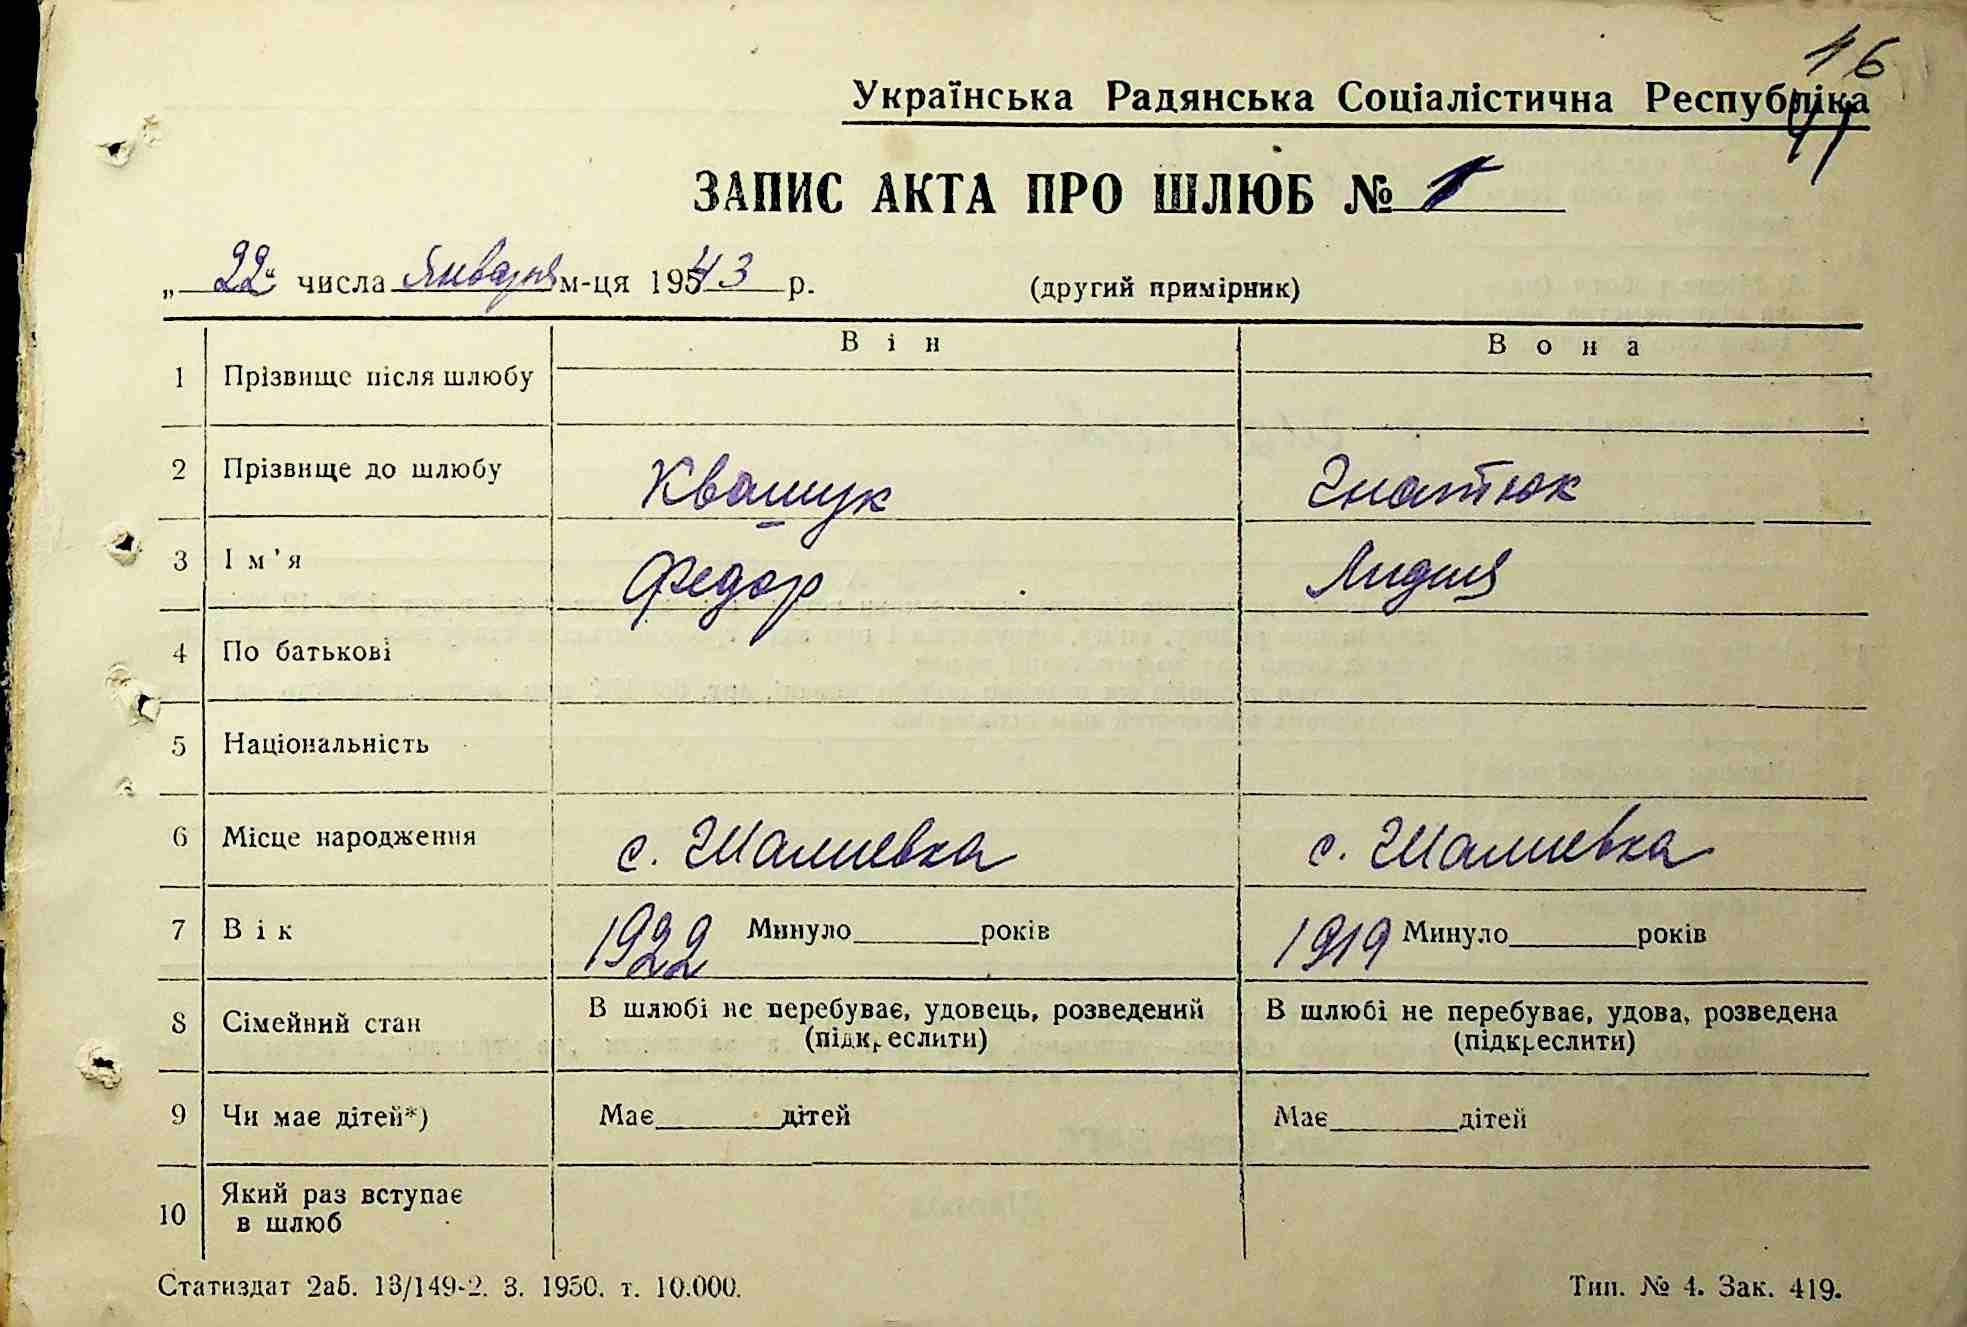 16
Українська Радянська Соціалістична Республіка
ЗАПИС АКТА ПРО ШЛЮБ № 1
„ 22 " числа Января м-ця 1943 р. (другий примірник)
Він Вона
1 Прізвище після шлюбу
2 Прізвище до шлюбу Квашук Гнатюк
3 Ім'я Федор Лидия
4 По батькові
5 Національність
6 Місце народження с. Шалиевка с. Шалиевка
7 Вік 1922 Минуло років 1919 Минуло років
8 Сімейний стан В шлюбі не перебуває, удовець, розведений В шлюбі не перебуває, удова, розведена
(підкреслити) (підкреслити)
9 Чи має дітей*) Має дітей Має дітей
10 Який раз вступає
в шлюб
Статиздат 2аб. 13/149-2. 3. 1950. т. 10.000. Тип. № 4. Зак. 419.